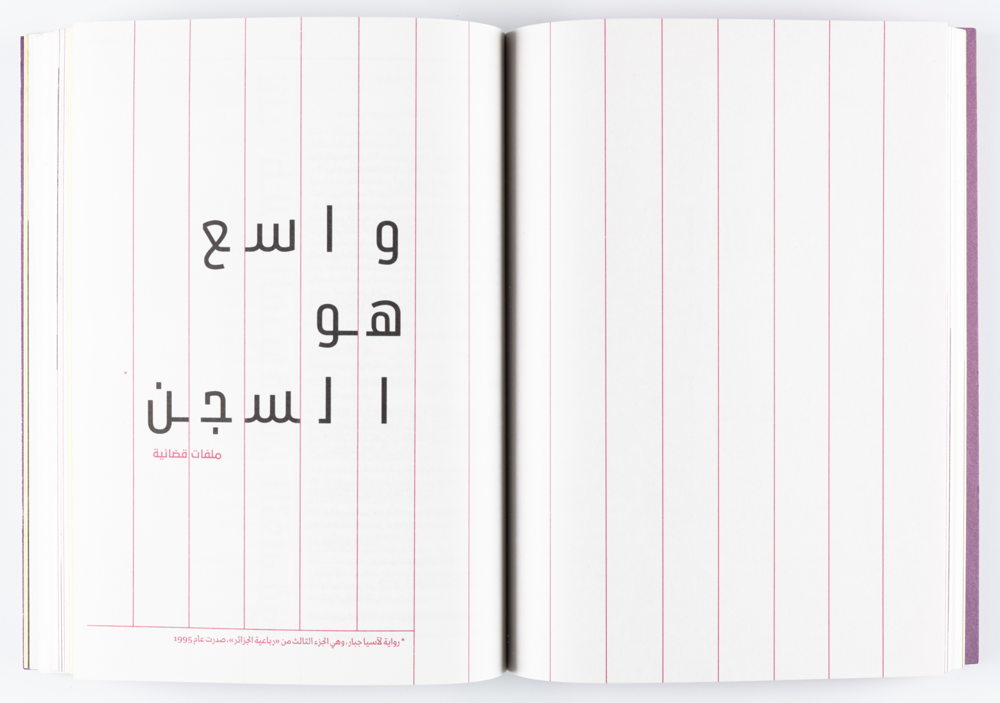 واسع
هو
السجن *
ملفات قضائية
* رواية لآسيا جبار، وهي الجزء الثالث من «رباعية الجزائر»، صدرت عام 1995